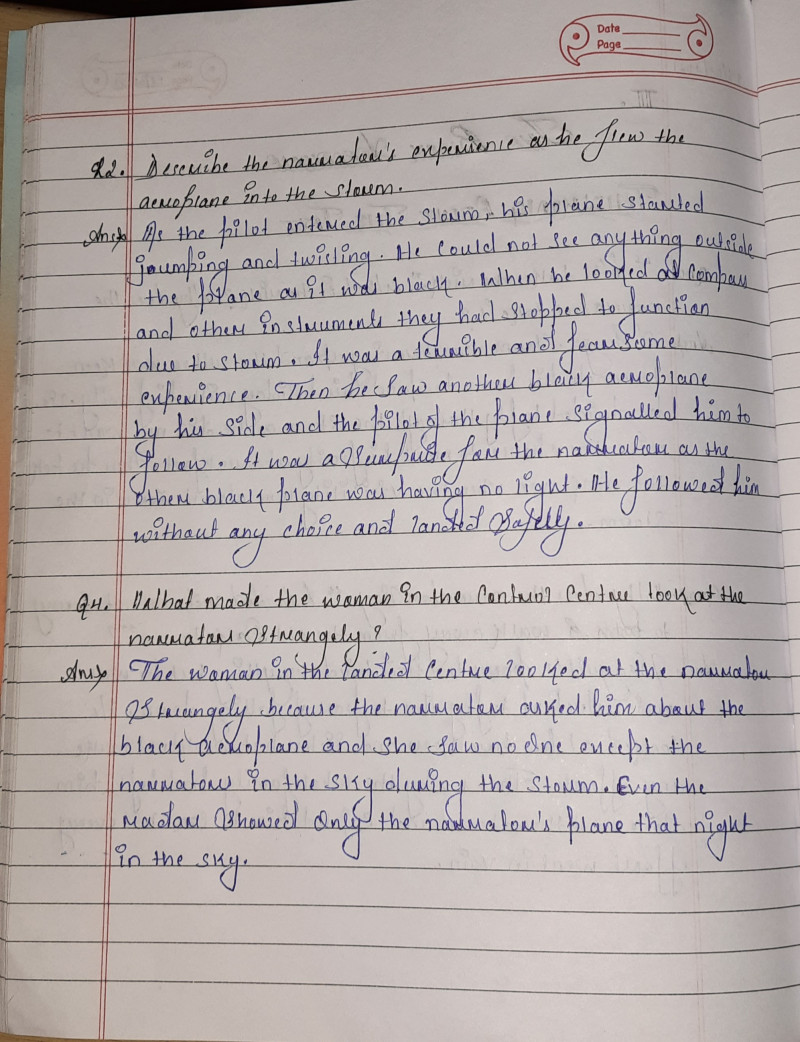 Date
Page
Q2. Describe the narrator's experience as he flew the
aeroplane into the storm.
Ans> As the pilot entered the storm, his plane started
jaumping and twisting. He could not see anything outside
the plane as it was black. When he looked at compass
and other instruments they had stopped to function
due to storm. It was a terrible and fearsome
experience. Then he saw another black aeroplane
by his side and the pilot of the plane signalled him to
follow. It was a surprise for the narrator as the
other black plane was having no light. He followed him
without any choice and landed safelly.
Q4. What made the woman in the control centre look at the
narrator strangely?
Ans> The woman in the landed centre looked at the narrator
strangely because the narrator asked him about the
black aeroplane and she saw no one except the
narrator in the sky during the storm. Even the
radar showed only the narrator's plane that night
in the sky.